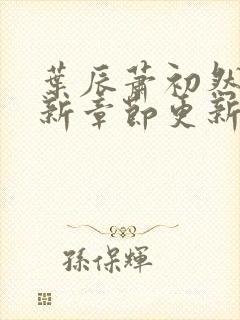 葉辰蕭初然
新章節更新
孫保輝